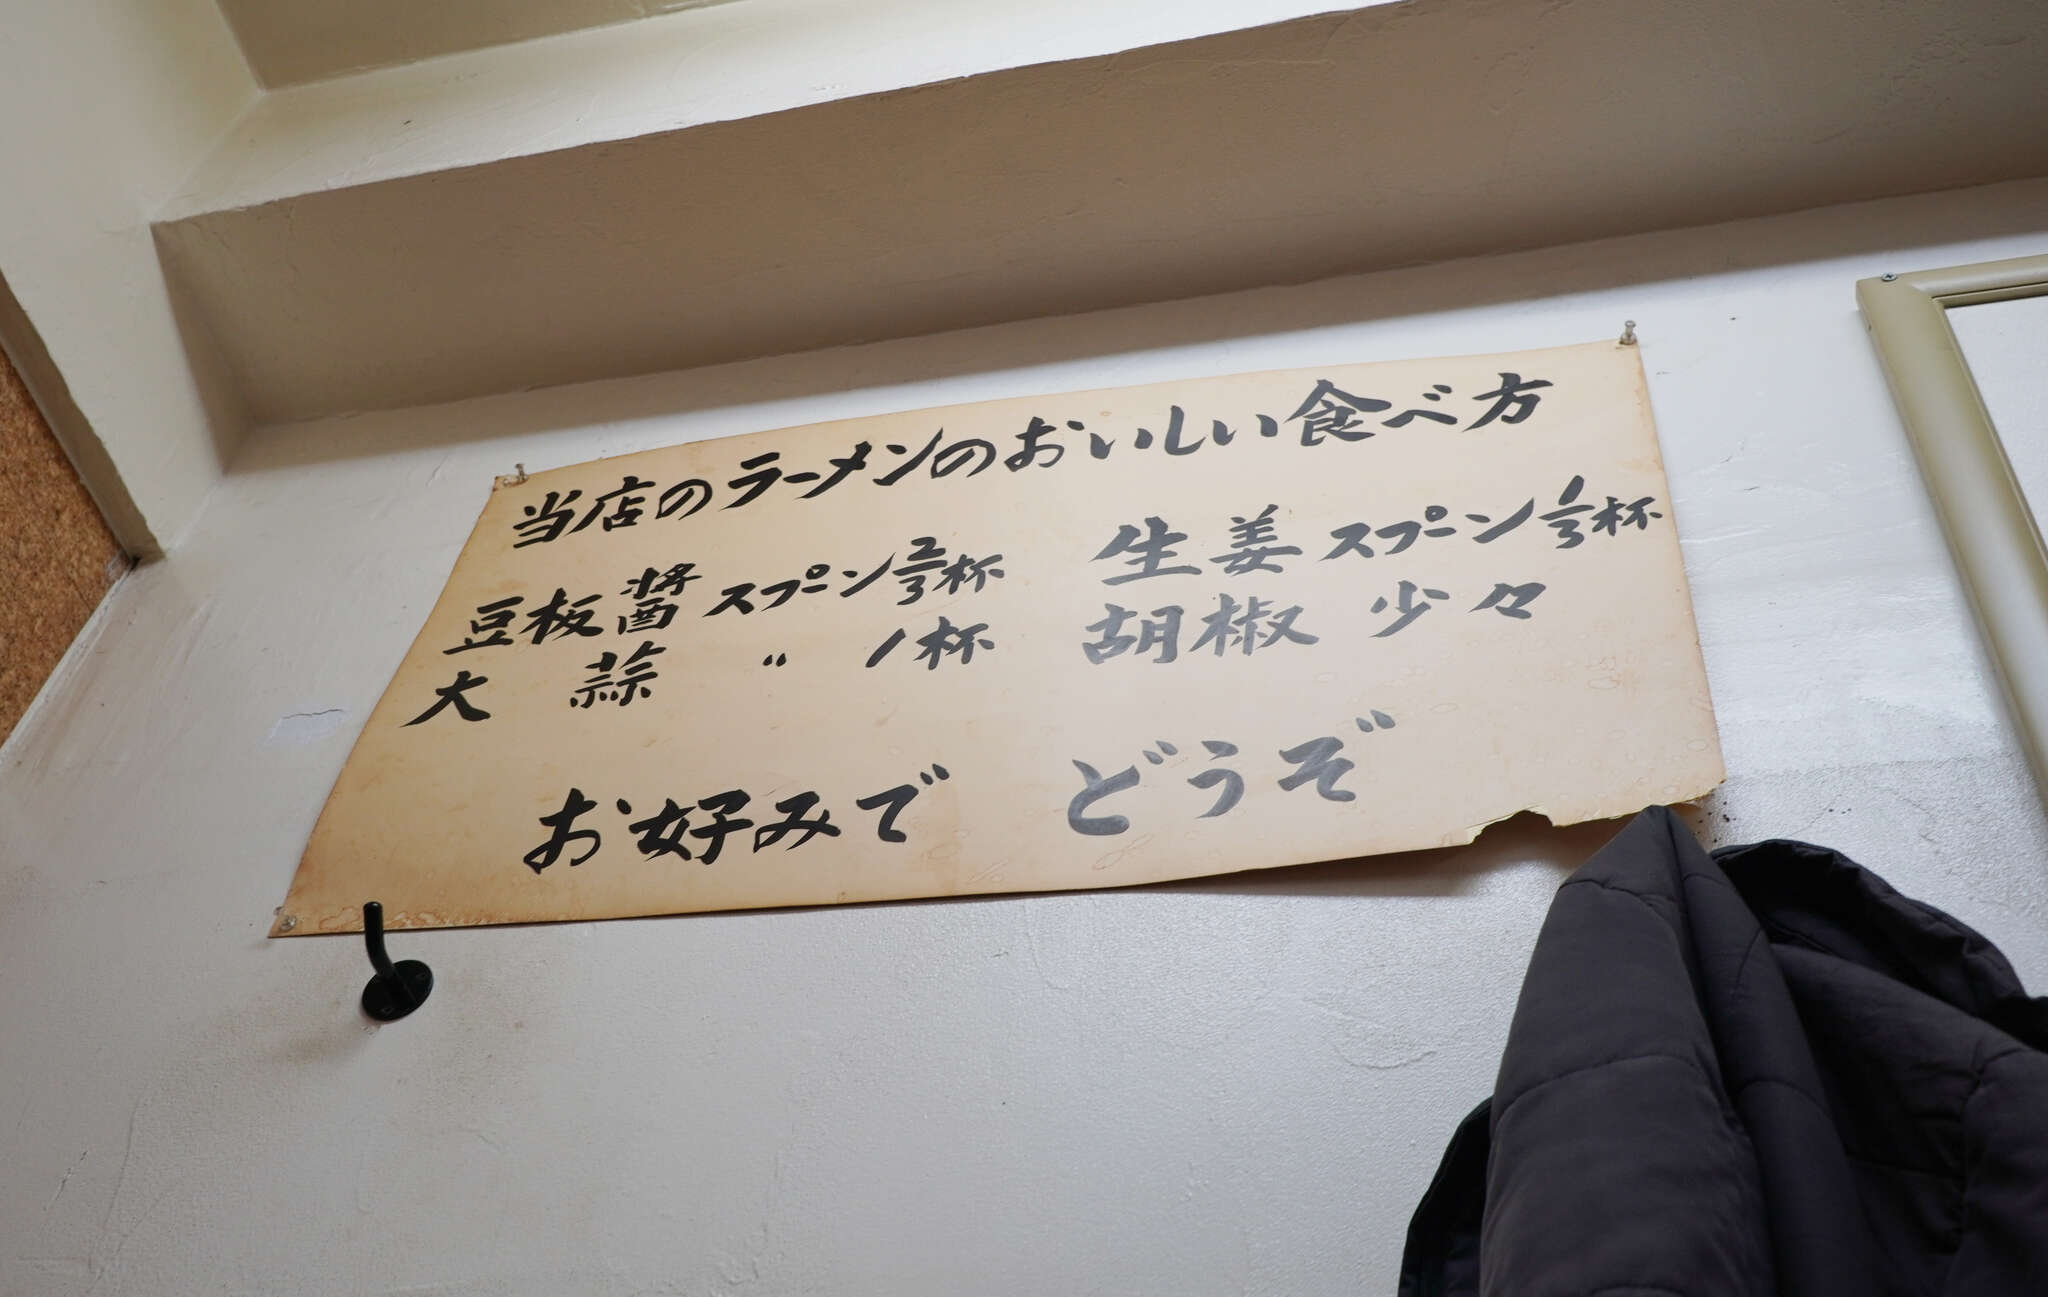 当店のラーメンのおいしい食べ方
豆板醤 スプーン2/3杯 生姜 スプーン1/3杯
大蒜 〃 1杯 胡椒 少々
お好みで どうぞ